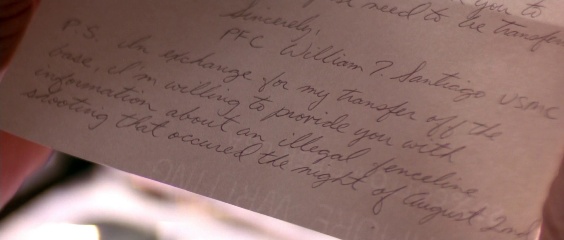 you to
need to be transfer
Sincerely,
PFC William T. Santiago USMC
P.S. In exchange for my transfer off the
base, I'm willing to provide you with
information about an illegal fenceline
shooting that occured the night of August 2nd